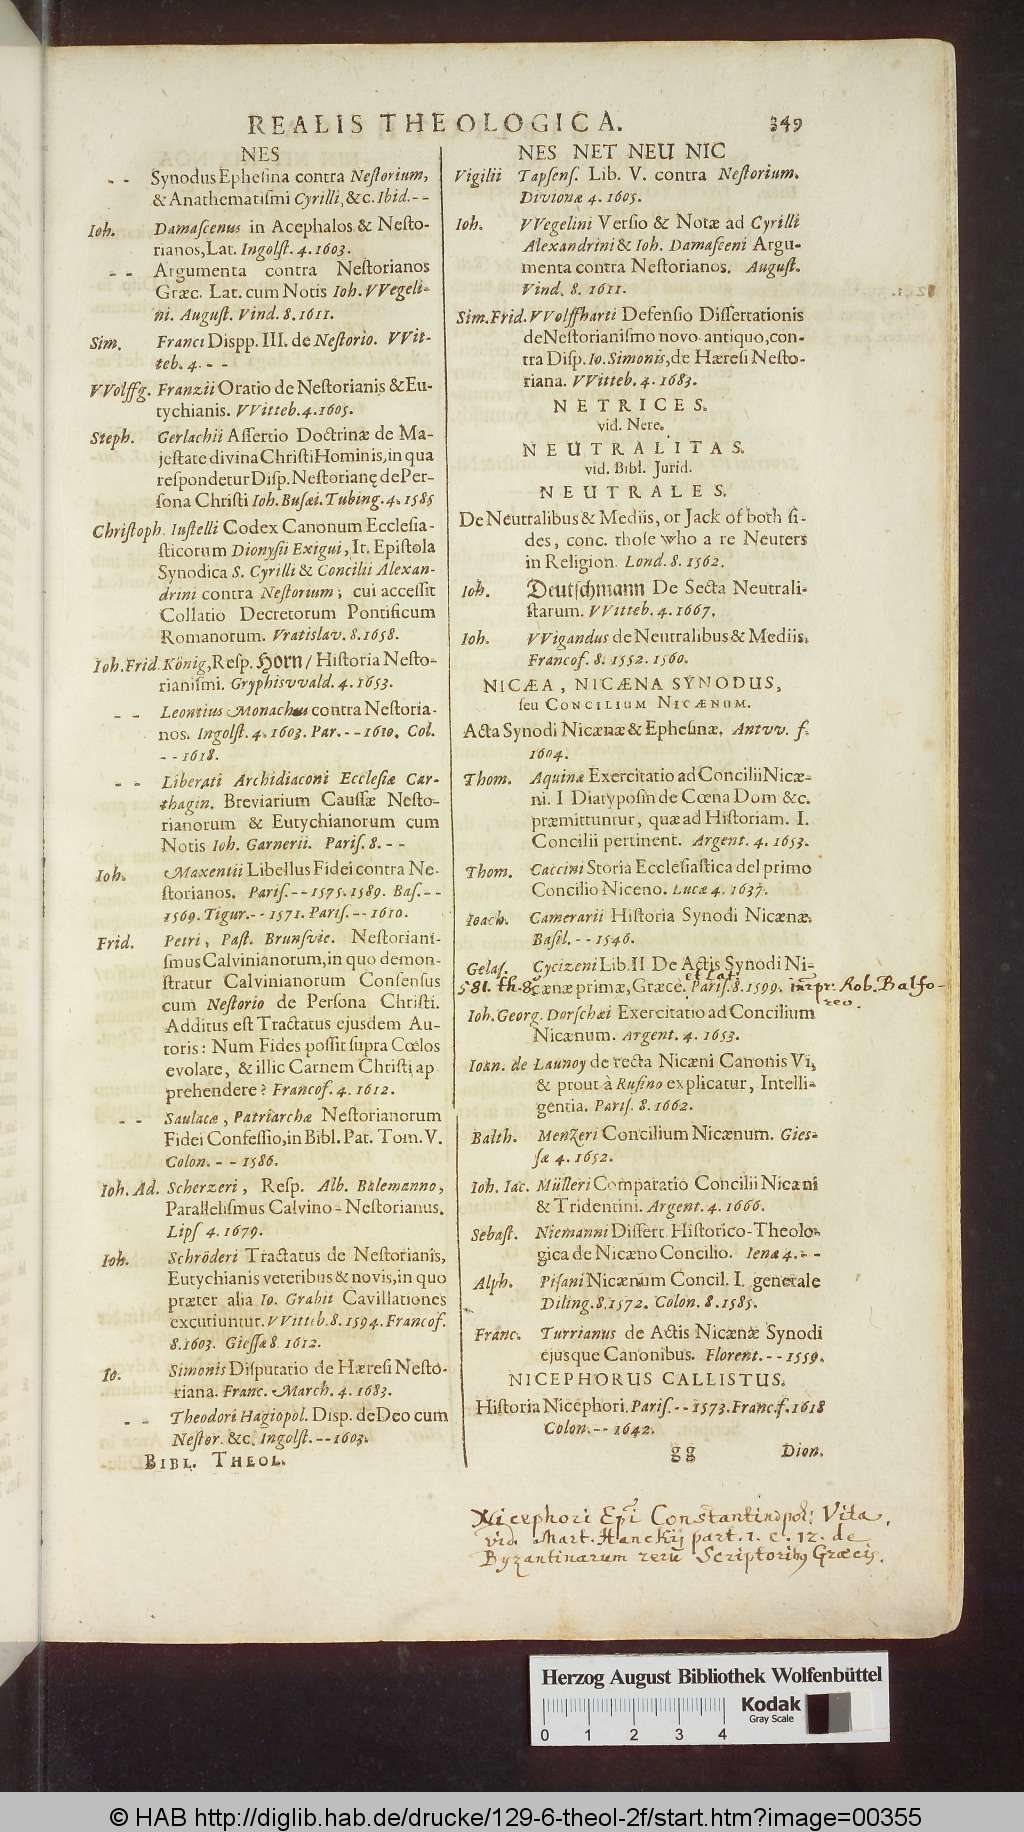 REALIS THEOLOGICA. 349
NES
- - Synodus Ephesina contra Nestorium,
& Anathematismi Cyrilli, &c. Ibid. - -
Ioh. Damascenus in Acephalos & Nesto-
rianos, Lat. Ingolst. 4. 1603.
- - Argumenta contra Nestorianos
Græc. Lat. cum Notis Ioh. VVegeli-
ni. August. Vind. 8. 1611.
Sim. Franci Dispp. III. de Nestorio. VVit-
teb. 4. - -
VVolffg. Franzii Oratio de Nestorianis & Eu-
tychianis. VVitteb. 4. 1605.
Steph. Gerlachii Assertio Doctrinæ de Ma-
jestate divina Christi Hominis, in qua
respondetur Disp. Nestorianę de Per-
sona Christi Ioh. Busæi. Tubing. 4. 1585
Christoph. Iustelli Codex Canonum Ecclesia-
sticorum Dionysii Exigui, It. Epistola
Synodica S. Cyrilli & Concilii Alexan-
drini contra Nestorium; cui accessit
Collatio Decretorum Pontificum
Romanorum. Vratislav. 8. 1658.
Ioh. Frid. König, Resp. Horn / Historia Nesto-
rianismi. Gryphisvvald. 4. 1653.
- - Leontius Monachus contra Nestoria-
nos. Ingolst. 4. 1603. Par. - - 1610. Col.
- - 1618.
- - Liberati Archidiaconi Ecclesiæ Car-
thagin. Breviarium Caussæ Nesto-
rianorum & Eutychianorum cum
Notis Ioh. Garnerii. Paris. 8. - -
Ioh. Maxentii Libellus Fidei contra Ne-
storianos. Paris. - - 1575. 1589. Bas. - -
1569. Tigur. - - 1571. Paris. - - 1610.
Frid. Petri, Past. Brunsvic. Nestoriani-
smus Calvinianorum, in quo demon-
stratur Calvinianorum Consensus
cum Nestorio de Persona Christi.
Additus est Tractatus ejusdem Au-
toris: Num Fides possit supra Cœlos
evolare, & illic Carnem Christi ap
prehendere? Francof. 4. 1612.
- - Saulacæ, Patriarchæ Nestorianorum
Fidei Confessio, in Bibl. Pat. Tom. V.
Colon. - - 1586.
Ioh. Ad. Scherzeri, Resp. Alb. Balemanno,
Parallelismus Calvino-Nestorianus.
Lips 4. 1679.
Ioh. Schröderi Tractatus de Nestorianis,
Eutychianis veteribus & novis, in quo
præter alia Io. Grabii Cavillationes
excutiuntur. VVitteb. 8. 1594. Francof.
8. 1603. Giessæ 8. 1612.
Io. Simonis Disputatio de Hæresi Nesto-
riana. Franc. March. 4. 1683.
- - Theodori Hagiopol. Disp. de Deo cum
Nestor. &c. Ingolst. - - 1603.
BIBL. THEOL.
NES NET NEU NIC
Vigilii Tapsens. Lib. V. contra Nestorium.
Divionæ 4. 1605.
Ioh. VVegelini Versio & Notæ ad Cyrilli
Alexandrini & Ioh. Damasceni Argu-
menta contra Nestorianos. August.
Vind. 8. 1611.
Sim. Frid. VVolffharti Defensio Dissertationis
de Nestorianismo novo-antiquo, con-
tra Disp. Io. Simonis, de Hæresi Nesto-
riana. VVitteb. 4. 1683.
NETRICES.
vid. Nere.
NEUTRALITAS.
vid. Bibl. Jurid.
NEUTRALES.
De Neutralibus & Mediis, or Jack of both si-
des, conc. those who a re Neuters
in Religion. Lond. 8. 1562.
Ioh. Deutschmann De Secta Neutrali-
starum. VVitteb. 4. 1667.
Ioh. VVigandus de Neutralibus & Mediis.
Francof. 8. 1552. 1560.
NICÆA, NICÆNA SYNODUS,
seu CONCILIUM NICÆNUM.
Acta Synodi Nicænæ & Ephesinæ. Antvv. f.
1604.
Thom. Aquinæ Exercitatio ad Concilii Nicæ-
ni. I Diatyposin de Cœna Dom &c.
præmittuntur, quæ ad Historiam. I.
Concilii pertinent. Argent. 4. 1653.
Thom. Caccini Storia Ecclesiastica del primo
Concilio Niceno. Lucæ 4. 1637.
Ioach. Camerarii Historia Synodi Nicænæ.
Basil. - - 1546.
Gelas. Cycizeni Lib. II De Actis Synodi Ni-
et Lat.
581. th. 8. cænæ primæ, Græce. Paris. 8. 1599. intpr: Rob. Balfo-
reo.
Ioh. Georg. Dorschæi Exercitatio ad Concilium
Nicænum. Argent. 4. 1653.
Ioan. de Launoy de recta Nicæni Canonis VI,
& prout à Rufino explicatur, Intelli-
gentia. Paris. 8. 1662.
Balth. Menzeri Concilium Nicænum. Gies-
sæ 4. 1652.
Ioh. Iac. Mülleri Comparatio Concilii Nicæni
& Tridentini. Argent. 4. 1666.
Sebast. Niemanni Dissert. Historico-Theolo-
gica de Nicæno Concilio. Ienæ 4. - -
Alph. Pisani Nicænum Concil. I. generale
Diling. 8. 1572. Colon. 8. 1585.
Franc. Turrianus de Actis Nicænæ Synodi
ejusque Canonibus. Florent. - - 1559.
NICEPHORUS CALLISTUS.
Historia Nicephori. Paris. - - 1573. Franc. f. 1618
Colon. - - 1642.
gg Dion.
Nicephori Epi Constantinopol: Vita,
vid. Mart. Hanckij part. 1. c. 12. de
Byzantinarum rerū Scriptoribus Græcis.
Herzog August Bibliothek Wolfenbüttel
Kodak
Gray Scale
0 1 2 3 4
© HAB http://diglib.hab.de/drucke/129-6-theol-2f/start.htm?image=00355